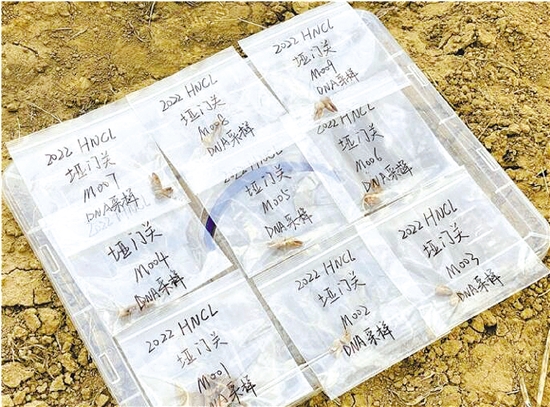 2022 HNCL
垭门关
M007
DNA采样
2022 HNCL
垭门关
M008
DNA采样
2022 HNCL
垭门关
M009
DNA采样
2022 HNCL
垭门关
M004
DNA采样
2022 HNCL
垭门关
M005
DNA采样
2022 HNCL
垭门关
M006
DNA采样
2022 HNCL
垭门关
M001
DNA采样
2022 HNCL
垭门关
M002
DNA采样
2022 HNCL
垭门关
M003
DNA采样